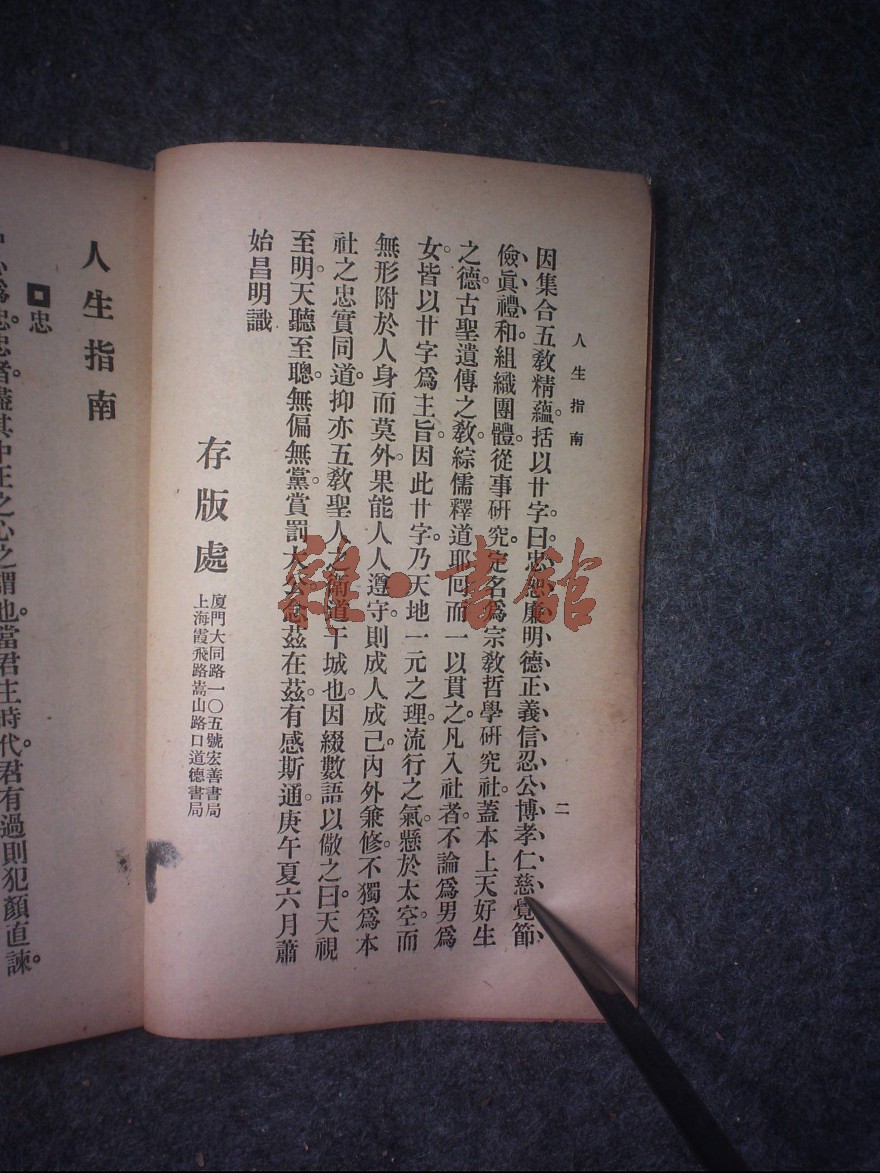 人生指南
二
因集合五敎精蘊。括以廿字。曰忠恕廉明德正義信忍公博孝仁慈覺節
儉眞禮和。組織團體。從事硏究。定名爲宗敎哲學硏究社。蓋本上天好生
之德。古聖遺傳之敎。綜儒釋道耶回而一以貫之。凡入社者。不論爲男爲
女。皆以廿字爲主旨。因此廿字。乃天地一元之理。流行之氣。懸於太空。而
無形附於人身而莫外。果能人人遵守。則成人成己。內外兼修。不獨爲本
社之忠實同道。抑亦五敎聖人之衛道干城也。因綴數語以儆之曰。天視
至明。天聽至聰。無偏無黨。賞罰大公。念茲在茲。有感斯通。庚午夏六月蕭
始昌明識
存版處
廈門大同路一〇五號宏善書局
上海霞飛路嵩山路口道德書局
人生指南
忠
忠者。盡其中正之心之謂也。當君主時代。君有過則犯顏直諫。
雜·書館